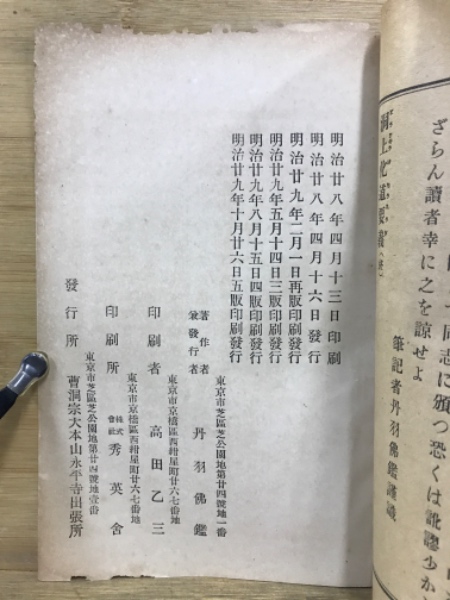 ざらん讀者幸に之を諒せよ
筆記者丹羽佛鑑謹識
明治廿八年四月十三日印刷
明治廿八年四月十六日發行
明治廿九年二月一日再版印刷發行
明治廿九年五月十四日三版印刷發行
明治廿九年八月十五日四版印刷發行
明治廿九年十月廿六日五版印刷發行
東京市芝區芝公園地第廿四號地一番
著作者兼發行者 丹羽佛鑑
東京市京橋區西紺屋町廿六七番地
印刷者 高田乙三
東京市京橋區西紺屋町廿六七番地
印刷所 株式會社 秀英舍
東京市芝區芝公園地第廿四號地壹番
發行所 曹洞宗大本山永平寺出張所